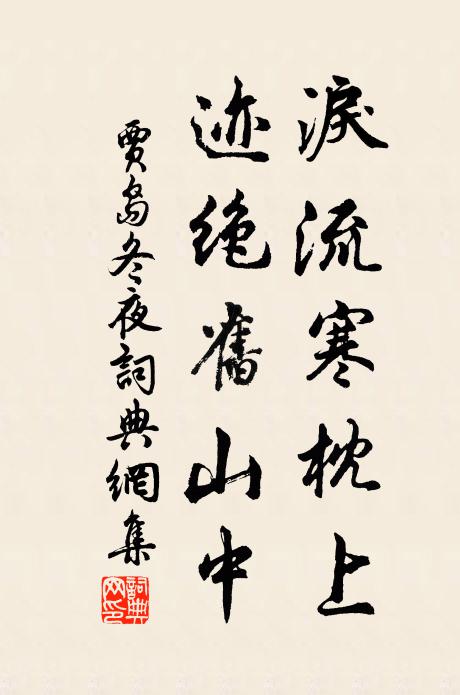 淚流寒枕上
迹絶舊山中
賈島冬夜詞典網集
詞典網印